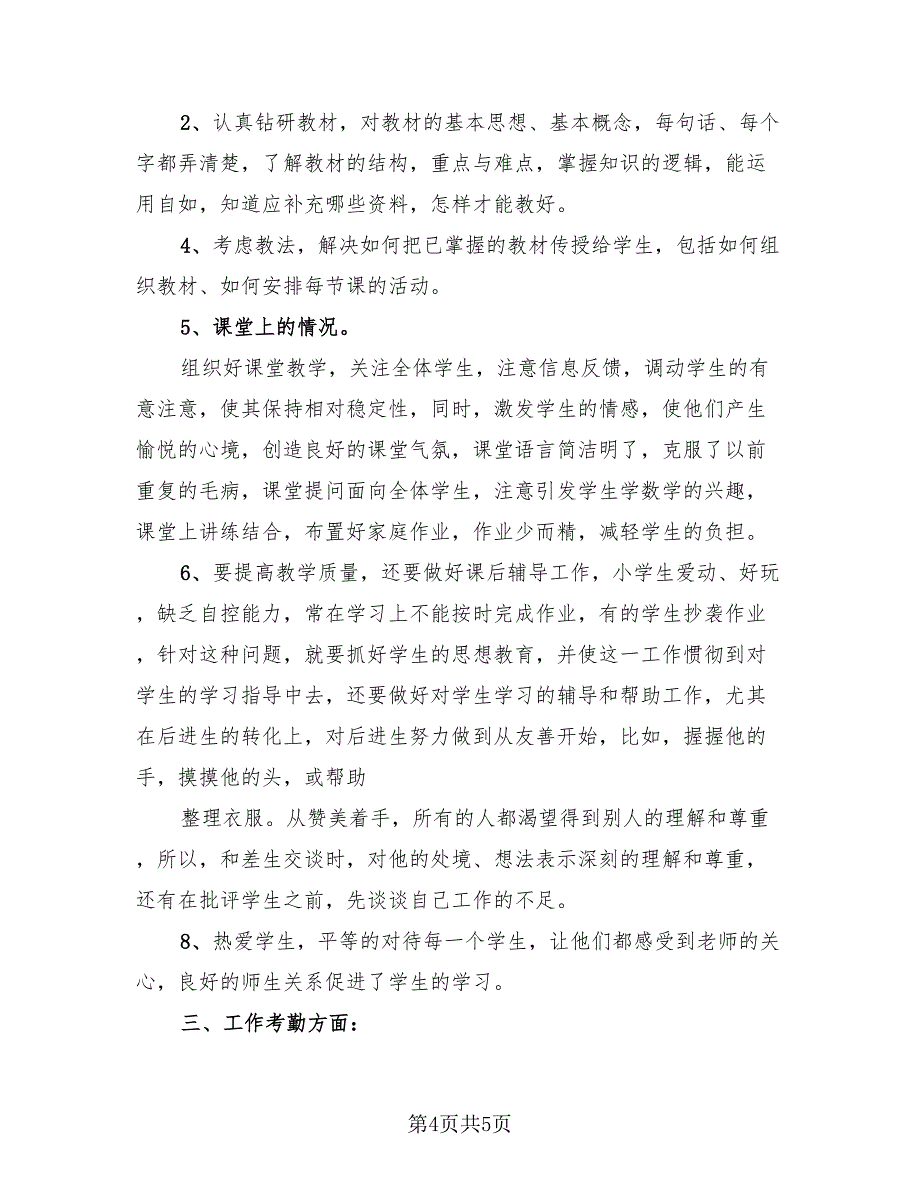 2、认真钻研教材，对教材的基本思想、基本概念，每句话、每个
字都弄清楚，了解教材的结构，重点与难点，掌握知识的逻辑，能运
用自如，知道应补充哪些资料，怎样才能教好。
4、考虑教法，解决如何把已掌握的教材传授给学生，包括如何组
织教材、如何安排每节课的活动。
5、课堂上的情况。
组织好课堂教学，关注全体学生，注意信息反馈，调动学生的有
意注意，使其保持相对稳定性，同时，激发学生的情感，使他们产生
愉悦的心境，创造良好的课堂气氛，课堂语言简洁明了，克服了以前
重复的毛病，课堂提问面向全体学生，注意引发学生学数学的兴趣，
课堂上讲练结合，布置好家庭作业，作业少而精，减轻学生的负担。
6、要提高教学质量，还要做好课后辅导工作，小学生爱动、好玩
，缺乏自控能力，常在学习上不能按时完成作业，有的学生抄袭作业
，针对这种问题，就要抓好学生的思想教育，并使这一工作惯彻到对
学生的学习指导中去，还要做好对学生学习的辅导和帮助工作，尤其
在后进生的转化上，对后进生努力做到从友善开始，比如，握握他的
手，摸摸他的头，或帮助
整理衣服。从赞美着手，所有的人都渴望得到别人的理解和尊重
，所以，和差生交谈时，对他的处境、想法表示深刻的理解和尊重，
还有在批评学生之前，先谈谈自己工作的不足。
8、热爱学生，平等的对待每一个学生，让他们都感受到老师的关
心，良好的师生关系促进了学生的学习。
三、工作考勤方面：
第4页共5页